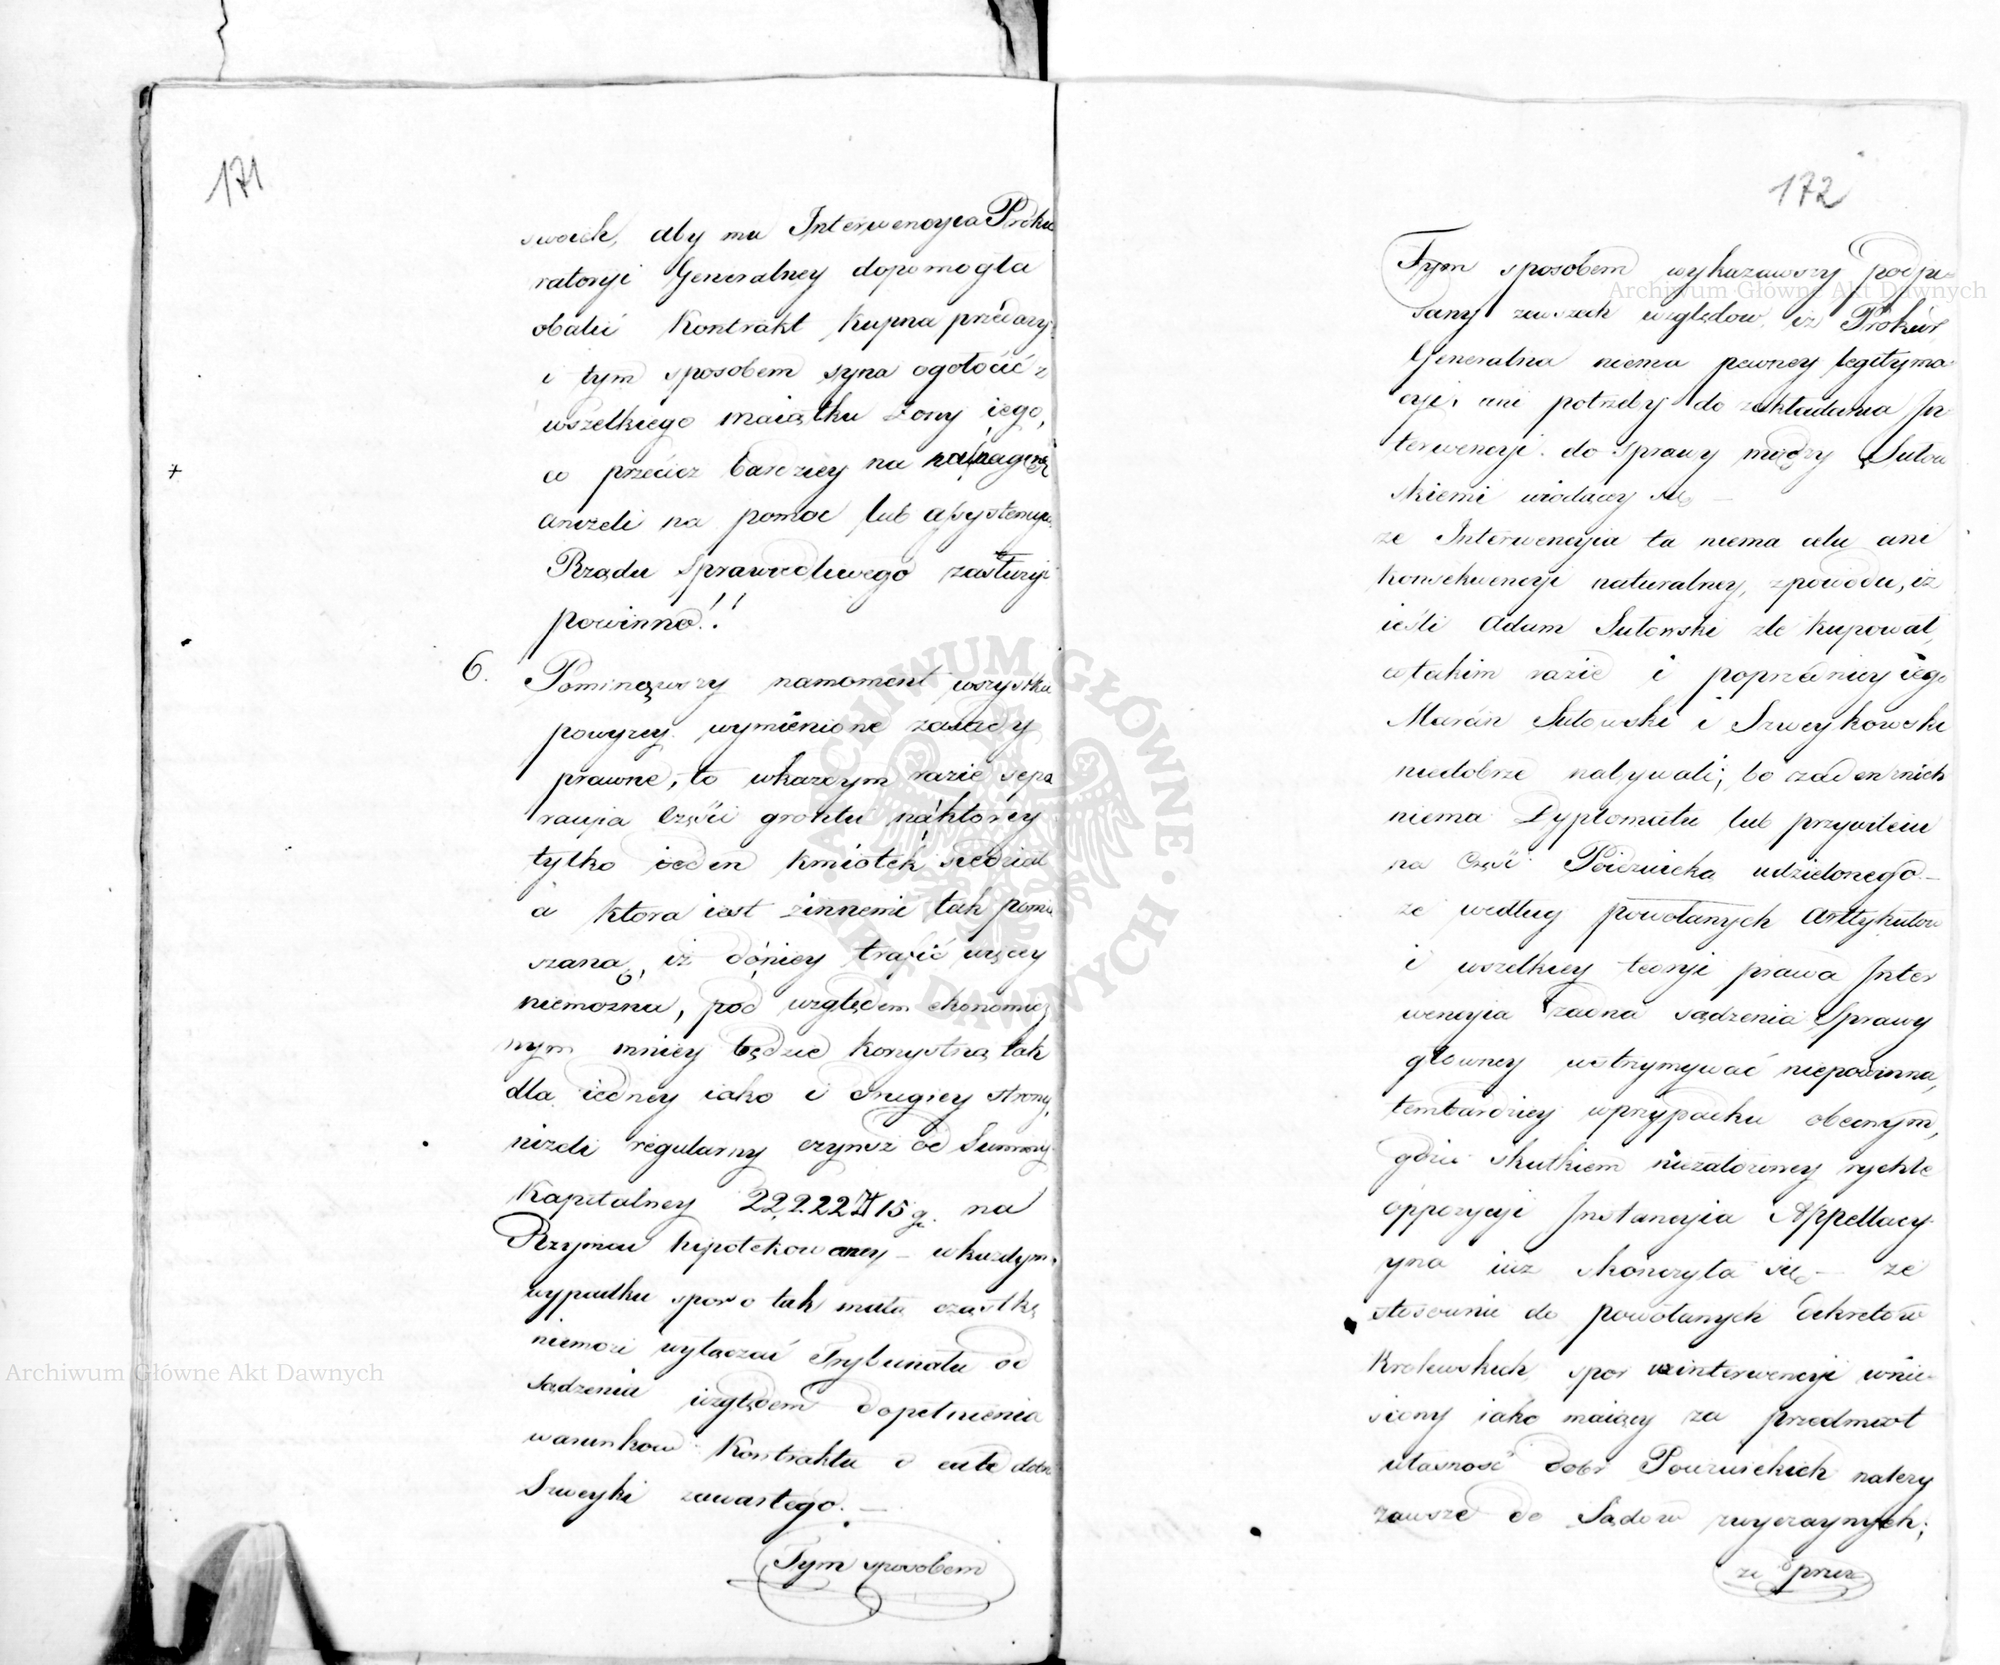 171
swoich, aby mu Interwencyia Proku
ratoryi Generalney dopomogła
obalić Kontrakt kupna przedarzy
i tym sposobem syna ogołocić z
wszelkiego maiątku żony iego,
co przecież bardziey na
aniżeli na pomoc lub assystencyą
Rządu sprawiedliwego zasłużyć
powinno!!
6. Pominąwszy namoment wszystkie
powyżey wymienione zasady
prawne, to wkażdym razie sepa
racyia części gruntu náktórey
tylko ieden kmiotek siedział
a która iest zinnemi tak pomie
szana, iż dóniey trafić więcey
niemożna, pod względem ekonomicz
nym mniey będzie korzystną tak
dla iedney iako i drugiey strony,
niżeli regularny czynsz od Summy
Kapitalney 22,222 Zł 15 gr. na
Rzymcu hipotekowaney – wkażdym
wypadku spor o tak małą cząstkę
niemoże wyłączać Trybunału od
sądzenia względem dopełnienia
warunków Kontraktu o całe dobra
Szweyki zawartego. —
Tym sposobem
172
Tym sposobem wykazawszy podpi-
sany zawszech względów, iż Prokur
Generalna niema pewney legityma-
cyi, ani potrzeby do zakładania In
terwencyi do sprawy między Sutow
skiemi wiodącey się —
że Interwencyia ta niema celu ani
konsekwencyi naturalney, zpowodu, iż
ieśli Adam Sutowski źle kupował,
wtakim razie i poprzednicy iego
Marcin Sutowski i Szweykowski
niedobrze nabywali; bo żaden znich
niema Dyplomatu lub przywileiu
na Część Poiednicka udzielonego —
że według powołanych Arttykułów
i wszelkiey teoryi prawa Inter
wencyia żadna sądzenia Sprawy
główney wstrzymywać niepowinna,
tembardziey wprzypadku obecnym,
gdzie skutkiem niezałożoney rychłe
oppozycyi Instancyia Appellacy
yna iuż skończyła się — że
stosownie do powołanych Dekretów
Królewskich, spor winterwencyi wnie-
siony iako maiący za przedmiot
własność dóbr należy
zawsze do Sądów zwyczaynych;
że przez
Archiwum Główne Akt Dawnych
Archiwum Główne Akt Dawnych
ARCHIWUM GŁÓWNE AKT DAWNYCH